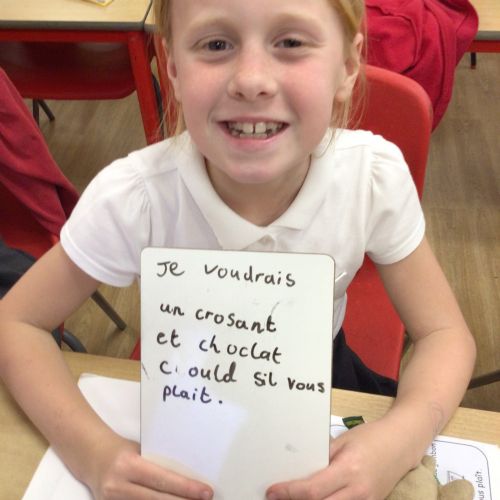 Je voudrais
un crosant
et choclat
c ould sil vous
plait.